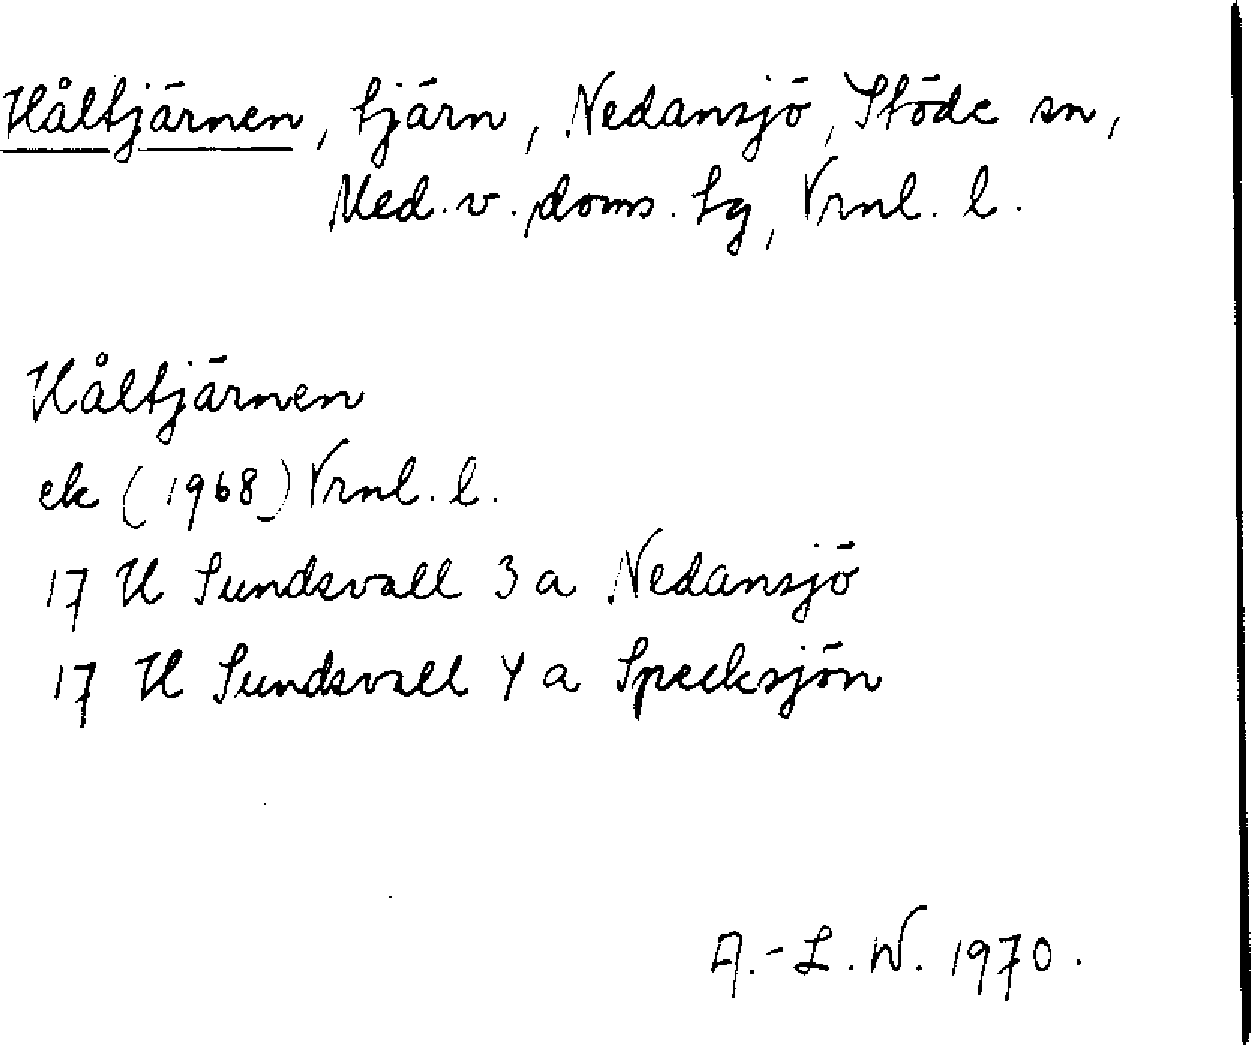 Håltjärnen, tjärn, Nedansjö, Stöde sn,
Med. v. doms. tg, Vrnl. l.
Håltjärnen
ek (1968) Vrnl. l.
17 H Sundsvall 3 a Nedansjö
17 H Sundsvall 4 a Specksjön
A.-L. W. 1970.